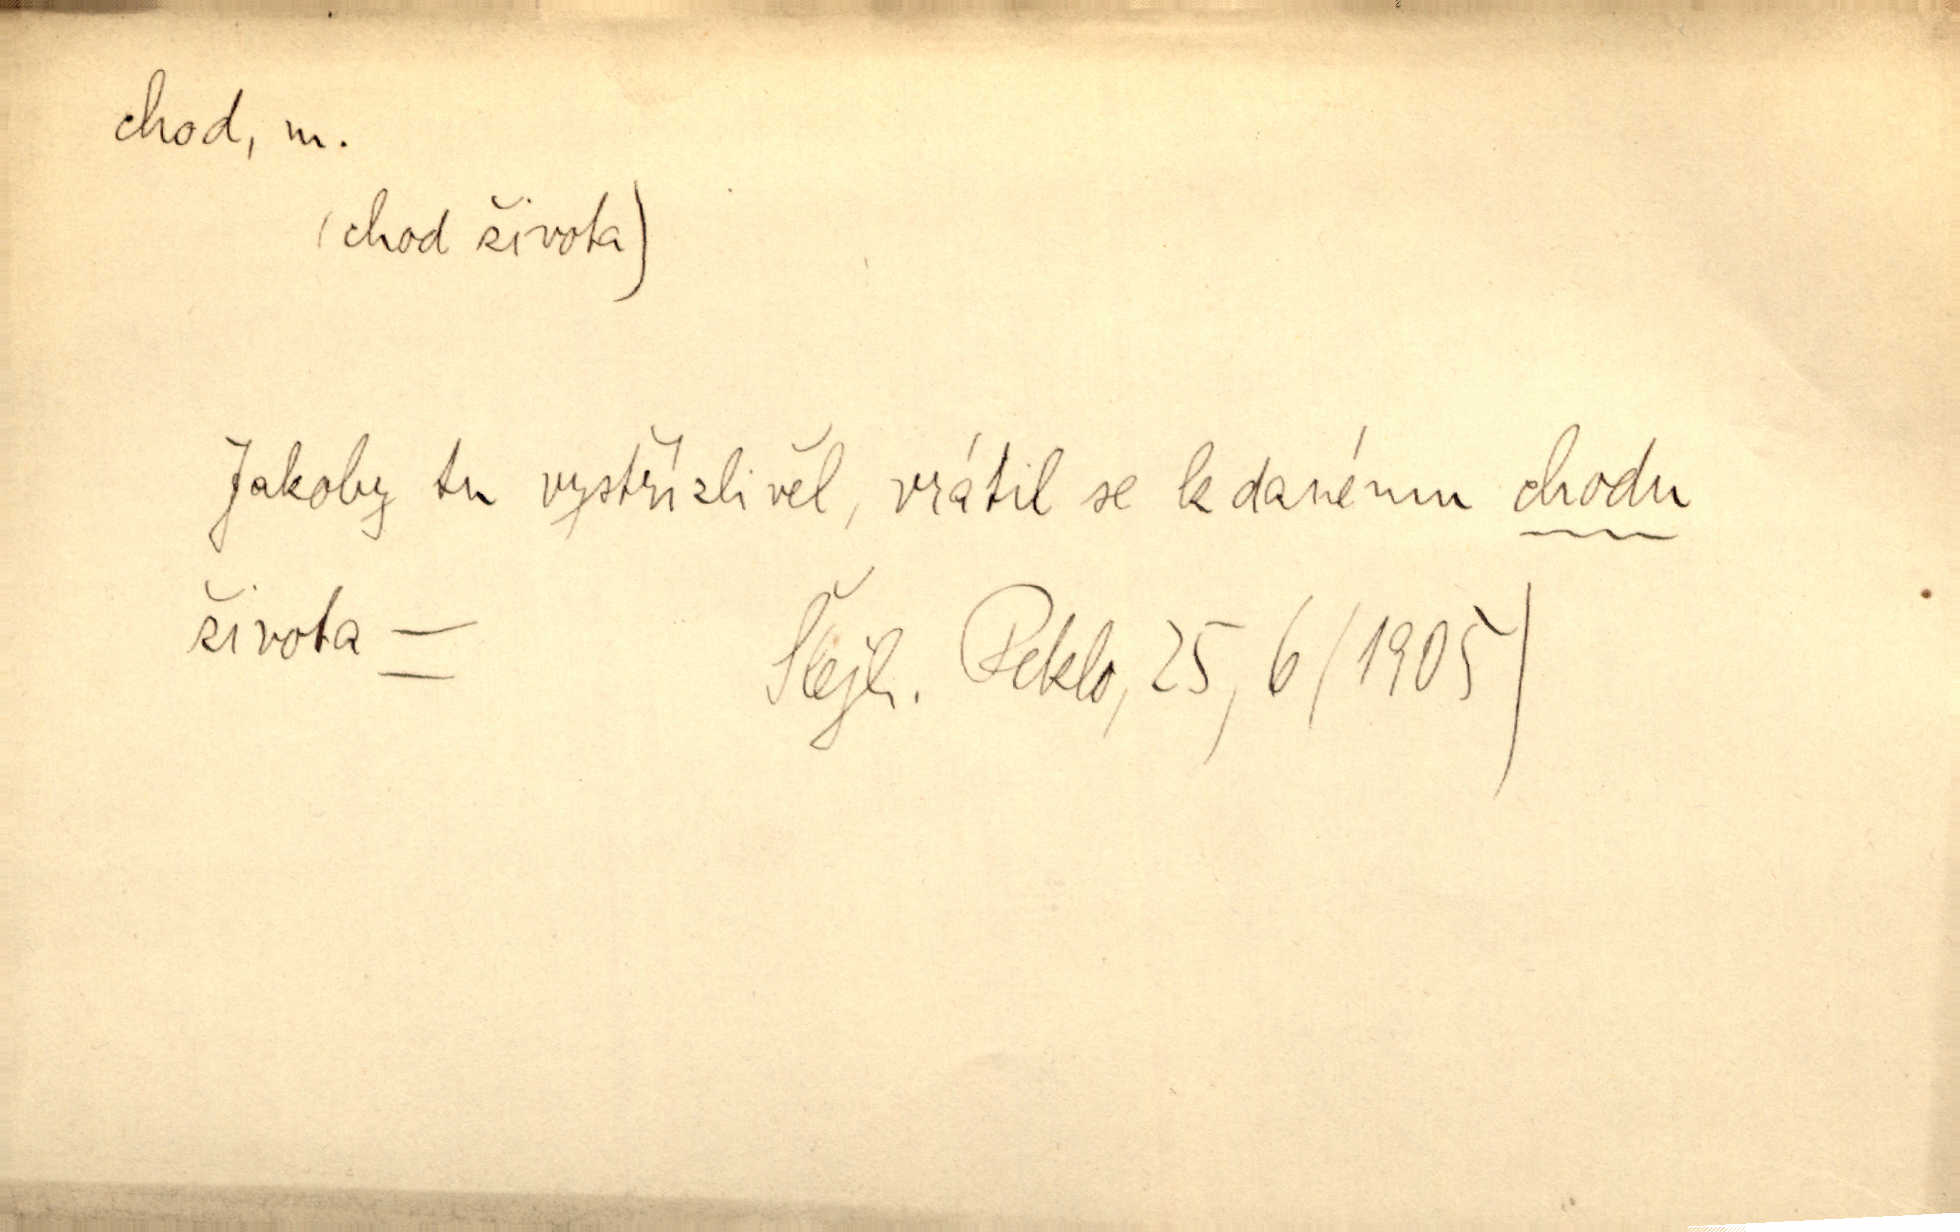 chod, m.
(chod života)
Jakoby tu vystřízlivěl, vrátil se k danému chodu
života =
Šlejh. Peklo, 25, 6 (1905)